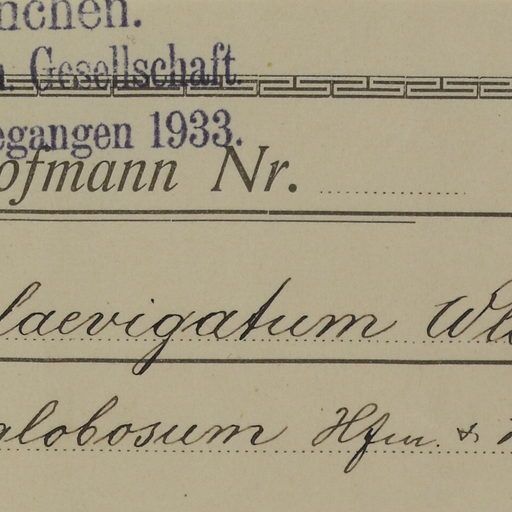 nchen.
n. Gesellschaft
egangen 1933.
ofmann Nr.
laevigatum Wl
globosum Hfm. &